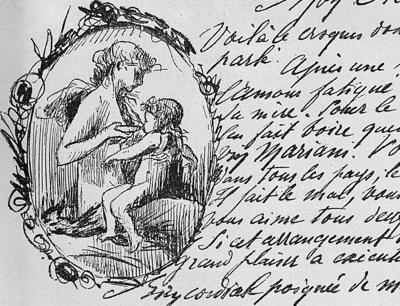 Voilà le croquis don
parlé. Après une
l'amour fatigué
sa mère. Pour le
lui fait boire quel
Mariani. V
Dans tous les pays, le
fait le mal, vous
vous aime tous deux
Si cet arrangement
grand plaisir à exécute
Bien cordiale poignée de m